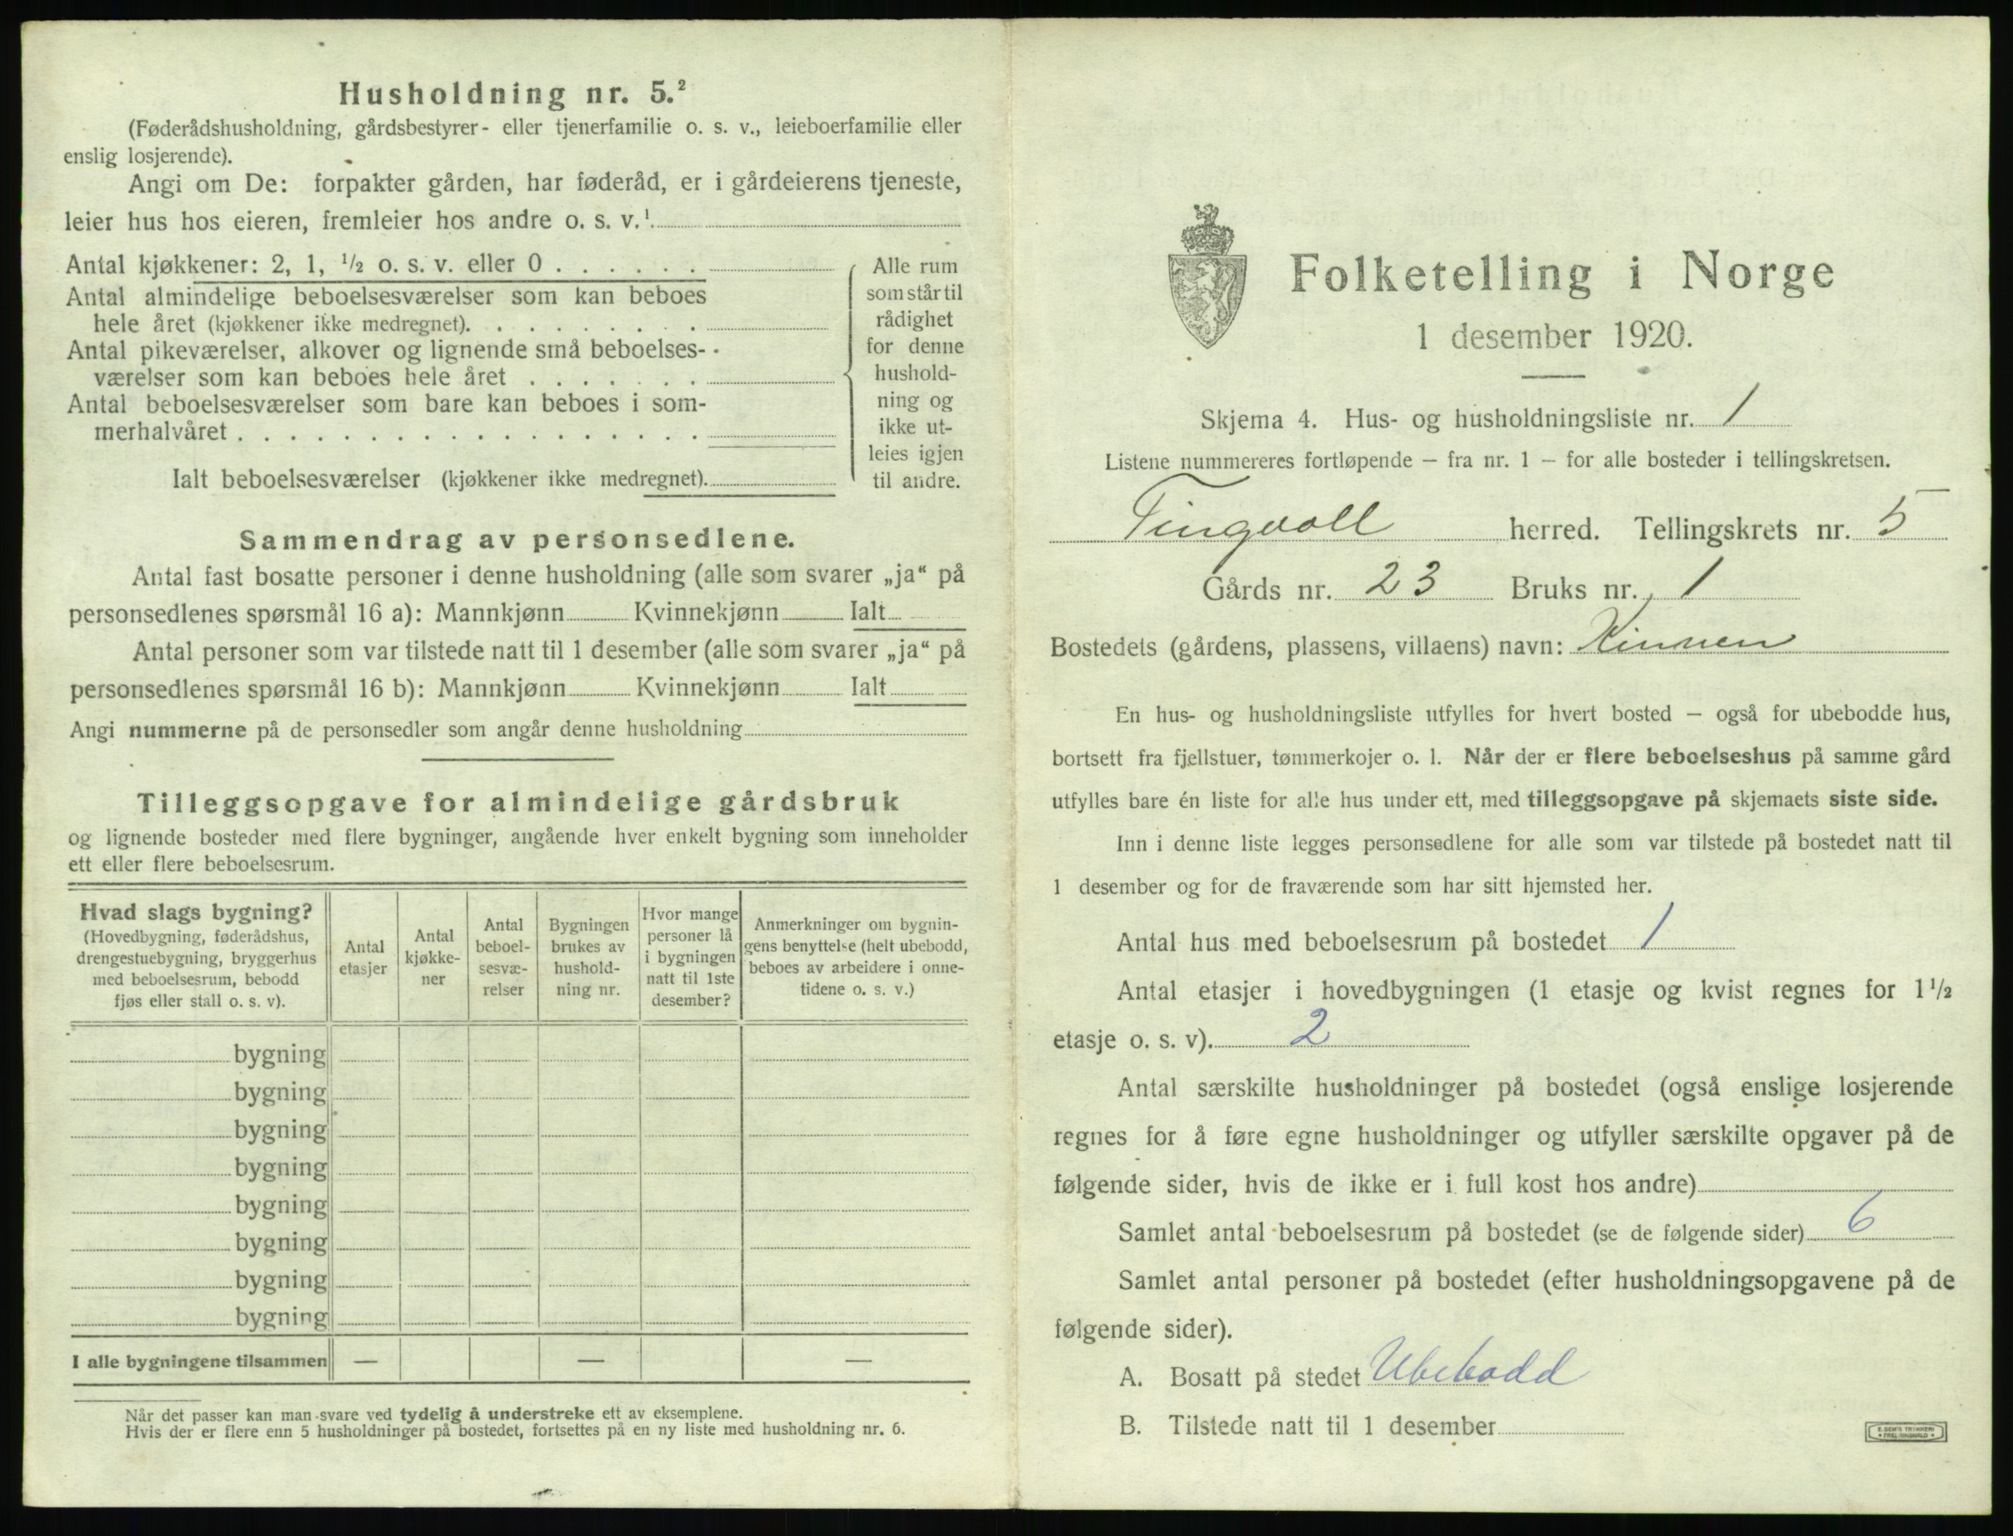 Husholdning nr. 5.²
(Føderådshusholdning, gårdsbestyrer- eller tjenerfamilie o. s. v., leieboerfamilie eller
enslig losjerende).
Angi om De: forpakter gården, har føderåd, er i gårdeierens tjeneste,
leier hus hos eieren, fremleier hos andre o. s. v.¹
Antal kjøkkener: 2, 1, ½ o. s. v. eller 0 . . . . . .
Antal almindelige beboelsesværelser som kan beboes
hele året (kjøkkener ikke medregnet). . . . . . . . .
Antal pikeværelser, alkover og lignende små beboelses-
værelser som kan beboes hele året . . . . . . .
Antal beboelsesværelser som bare kan beboes i som-
merhalvåret . . . . . . . . . . . . . . . . . .
Ialt beboelsesværelser (kjøkkener ikke medregnet).
Alle rum
som står til
rådighet
for denne
hushold-
ning og
ikke ut-
leies igjen
til andre.
Sammendrag av personsedlene.
Antal fast bosatte personer i denne husholdning (alle som svarer „ja“ på
personsedlenes spørsmål 16 a): Mannkjønn Kvinnekjønn Ialt
Antal personer som var tilstede natt til 1 desember (alle som svarer „ja“ på
personsedlenes spørsmål 16 b): Mannkjønn Kvinnekjønn Ialt
Angi nummerne på de personsedler som angår denne husholdning
Tilleggsopgave for almindelige gårdsbruk
og lignende bosteder med flere bygninger, angående hver enkelt bygning som inneholder
ett eller flere beboelsesrum.
Hvad slags bygning?
(Hovedbygning, føderådshus,
drengestuebygning, bryggerhus
med beboelsesrum, bebodd
fjøs eller stall o. s. v).
Antal
etasjer
Antal
kjøkke-
ner
Antal
beboel-
sesvæ-
relser
Bygningen
brukes av
hushold-
ning nr.
Hvor mange
personer lå
i bygningen
natt til 1ste
desember?
Anmerkninger om bygnin-
gens benyttelse (helt ubebodd,
beboes av arbeidere i onne-
tidene o. s. v.)
bygning
bygning
bygning
bygning
bygning
bygning
bygning
bygning
I alle bygningene tilsammen — — —
Når det passer kan man svare ved tydelig å understreke ett av eksemplene.
Hvis der er flere enn 5 husholdninger på bostedet, fortsettes på en ny liste med husholdning nr. 6.
Folketelling i Norge
1 desember 1920.
Skjema 4. Hus- og husholdningsliste nr. 1
Listene nummereres fortløpende — fra nr. 1 — for alle bosteder i tellingskretsen.
Tingvoll herred. Tellingskrets nr. 5
Gårds nr. 23 Bruks nr. 1
Bostedets (gårdens, plassens, villaens) navn: Kinnen
En hus- og husholdningsliste utfylles for hvert bosted — også for ubebodde hus,
bortsett fra fjellstuer, tømmerkojer o. l. Når der er flere beboelseshus på samme gård
utfylles bare én liste for alle hus under ett, med tilleggsopgave på skjemaets siste side.
Inn i denne liste legges personsedlene for alle som var tilstede på bostedet natt til
1 desember og for de fraværende som har sitt hjemsted her.
Antal hus med beboelsesrum på bostedet 1
Antal etasjer i hovedbygningen (1 etasje og kvist regnes for 1½
etasje o. s. v). 2
Antal særskilte husholdninger på bostedet (også enslige losjerende
regnes for å føre egne husholdninger og utfyller særskilte opgaver på de
følgende sider, hvis de ikke er i full kost hos andre)
Samlet antal beboelsesrum på bostedet (se de følgende sider) 6
Samlet antal personer på bostedet (efter husholdningsopgavene på de
følgende sider).
A. Bosatt på stedet Ubebodd
B. Tilstede natt til 1 desember